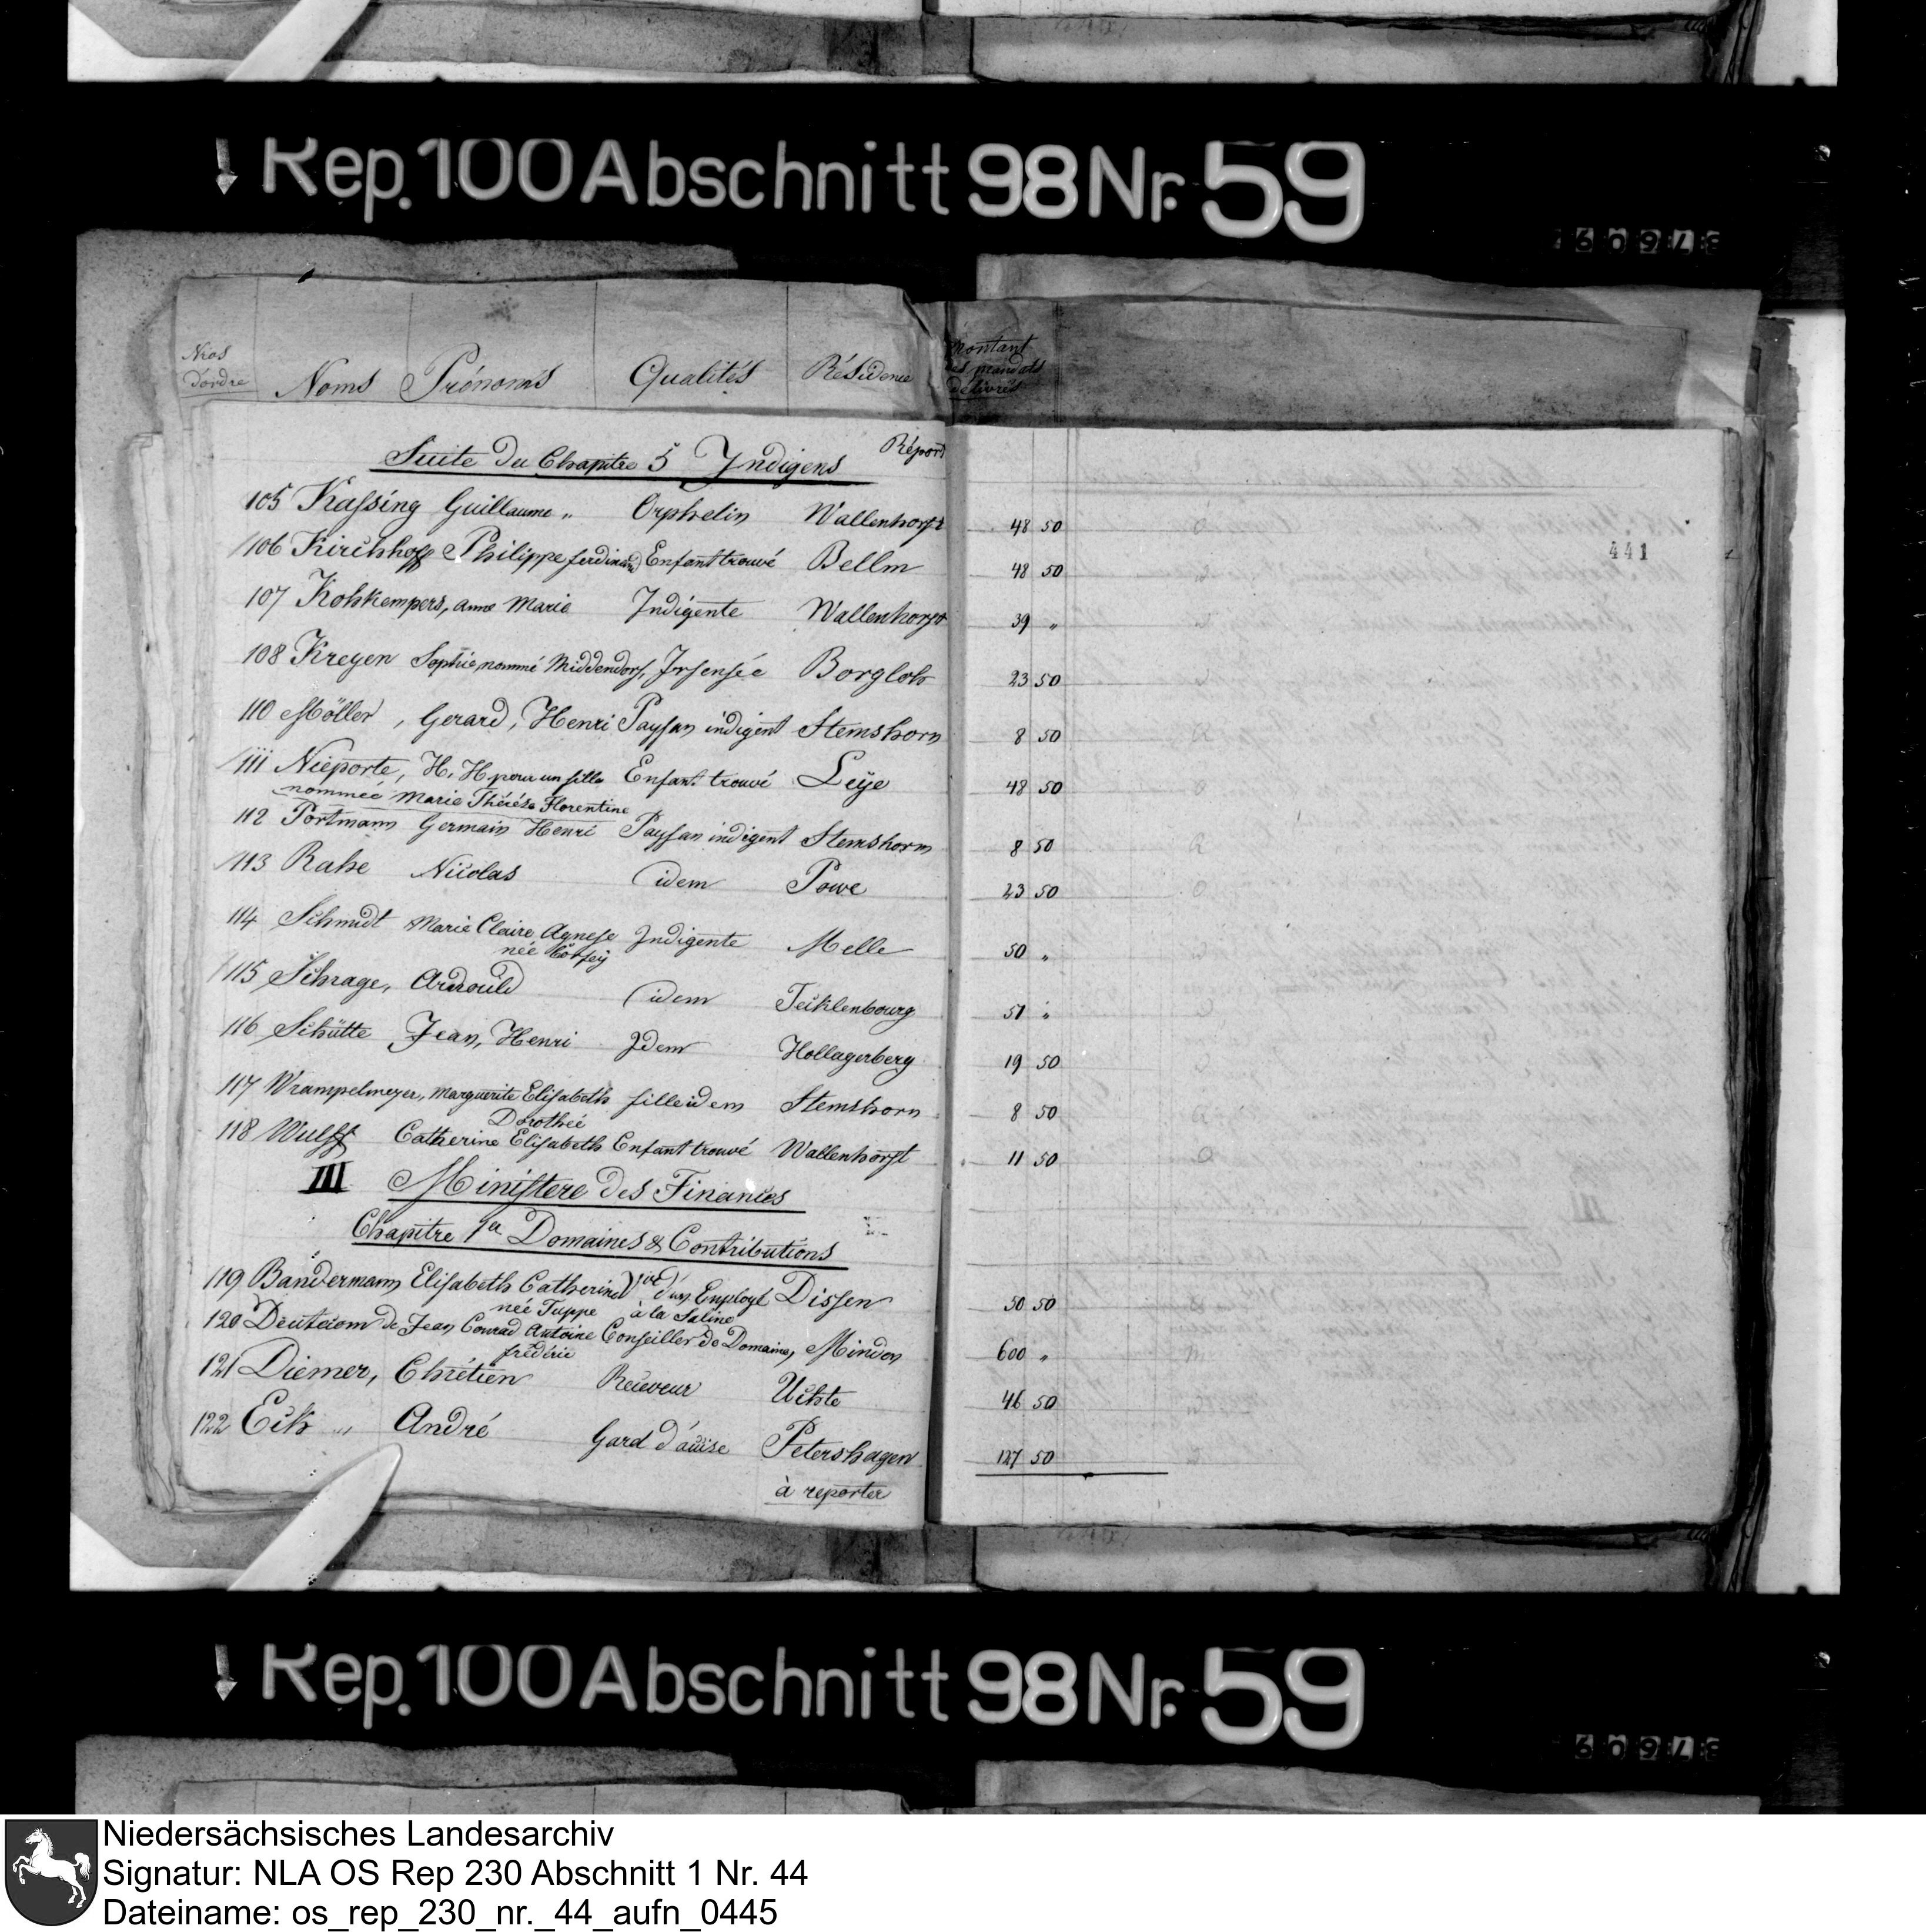 Rep. 100 Abschnitt 98 Nr. 59
Nros d'ordre Noms Prénoms Qualités Résidence Montant des mandats délivrés
Suite du Chapitre 5 Indigens Réport
105 Kassing Guillaume „ Orphelin Wallenhorst 48 50
441
106 Kirchhoff Philippe ferdinand Enfant trouvé Bellm 48 50
107 Kohkempers, anne Marie Indigente Wallenhorst 39 „
108 Kreyen Sophie, nommé Middendorf, Insensée Borgloh 23 50
110 Möller, Gerard, Henri Paysan indigent Stemshorn 8 50
111 Nieporte, H. H pour un fille Enfant trouvé Leye 48 50
nommée Marie Thérése Florentine
112 Portmann Germain Henri Paysan indigent Stemshorn 8 50
113 Rahe Nicolas idem Powe 23 50
114 Schmidt Marie Claire Agnese Indigente Melle 50 „
née
115 Schrage, idem Tecklenbourg 51 „
116 Schütte Jean, Henri Idem Hollagerberg 19 50
117 Wrampelmeyer, Marguerite Elisabeth fille idem Stemshorn 8 50
Dorothée
118 Wulff Catherine Elisabeth Enfant trouvé Wallenhorst 11 50
III Ministere des Finances
Chapitre 1er Domaines & Contributions
119 Bandermann Elisabeth Catherine d'un Employé Dissen 50 50
née Tuppe à la Saline
120 de Jean Conrad Antoine Conseiller de Domaine, Minden 600 „
frédéric
121 Diemer, Chrétien Receveur Uchte 46 50
122 Eck „ André Gard Petershagen 127 50
à reporter
Rep. 100 Abschnitt 98 Nr. 59
Niedersächsisches Landesarchiv
Signatur: NLA OS Rep 230 Abschnitt 1 Nr. 44
Dateiname: os_rep_230_nr._44_aufn_0445